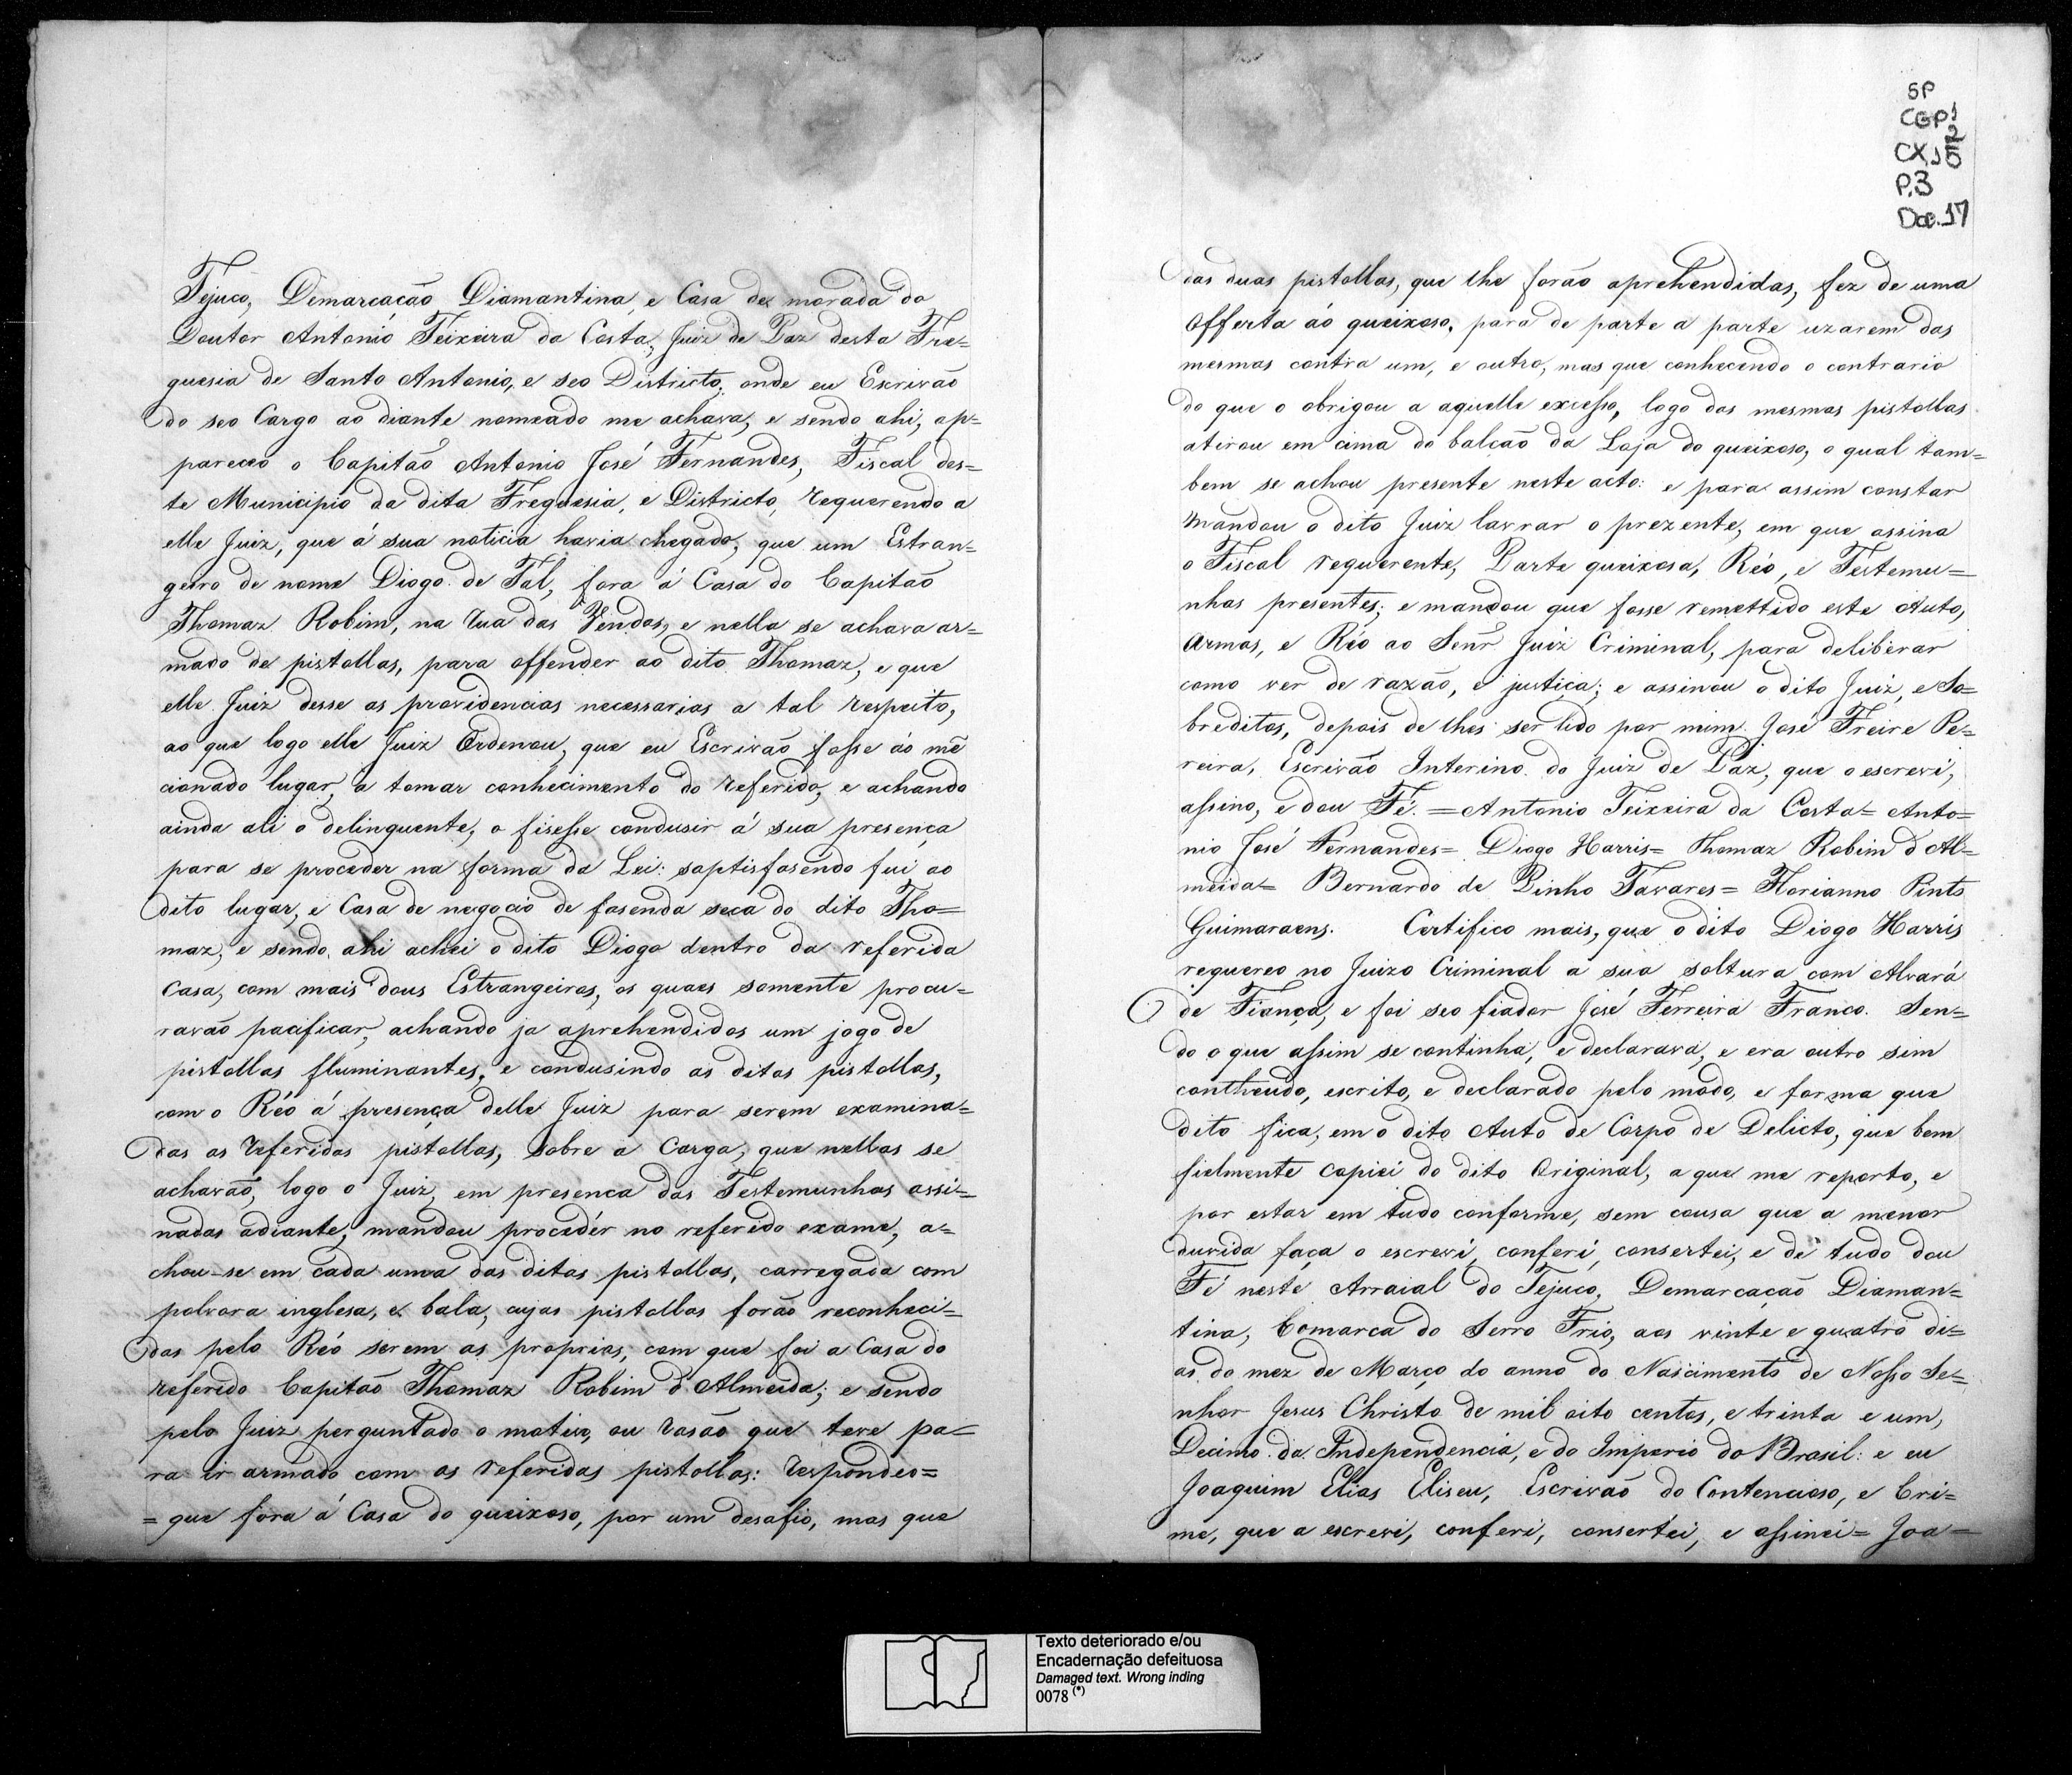 Tejuco, Demarcação Diamantina, e Casa de morada do
Doutor Antonio Teixeira da Costa, Juiz de Paz desta Fre=
guesia de Santo Antonio, e seo Districto, onde eu Escrivão
do seo Cargo ao diante nomeado me achava, e sendo ahi, ap=
pareceo o Capitão Antonio José Fernandes, Fiscal des=
te Municipio da dita Freguesia, e Districto, requerendo a
elle Juiz, que á sua noticia havia chegado, que um Estran=
geiro de nome Diogo de Tal, fora á Casa do Capitão
Thomaz Robim, na rua das Vendas, e nella se achava ar=
mado de pistollas, para offender ao dito Thomaz, e que
elle Juiz desse as providencias necessarias a tal respeito,
ao que logo elle Juiz Ordenou, que eu Escrivão fosse áo mẽ
cionado lugar, a tomar conhecimento do referido, e achando
ainda ali o delinquente, o fisesse condusir á sua presença
para se proceder na forma da Lei: saptisfasendo fui ao
dito lugar, e Casa de negocio de fasenda seca do dito Tho=
maz, e sendo ahi achei o dito Diogo dentro da referida
Casa, com mais dous Estrangeiros, os quaes somente procu=
ravão pacificar, achando ja aprehendidos um jogo de
pistollas fluminantes, e condusindo as ditas pistollas,
com o Réo á presença delle Juiz para serem examina=
das as referidas pistollas, sobre a Carga, que nellas se
achavão, logo o Juiz, em presenca das Testemunhas assi=
nadas adiante, mandou procedér no referido exame, a=
chou-se em cada uma das ditas pistollas, carregada com
polvora inglesa, e bala, cujas pistollas forão reconheci=
das pelo Réo serem as proprias, com que foi a Casa do
referido Capitão Thomaz Robim d'Almeida; e sendo
pelo Juiz perguntado o motivo, ou rasão que teve pa=
ra ir armado com as referidas pistollas: respondeo=
= que fora á Casa do queixoso, por um desafio, mas que
SP
CGP1
CX,1
P.3
Doc.17
das duas pistollas, que lhe forão aprehendidas, fez de uma
Offerta áo queixoso, para de parte a parte uzarem das
mesmas contra um, e outro, mas que conhecendo o contrario
do que o obrigou a aquelle excesso, logo das mesmas pistollas
atirou em cima do balcão da Loja do queixoso, o qual tam=
bem se achou presente neste acto: e para assim constar
mandou o dito Juiz lavrar o prezente, em que assina
o Fiscal requerente, Parte queixosa, Réo, e Testemu=
nhas presentes; e mandou que fosse remettido este Auto,
Armas, e Réo ao Senr Juiz Criminal, para deliberar
como ver de razão, e justiça; e assinou o dito Juiz, e So=
breditos, depois de lhes ser lido por mim José Freire Pe=
reira, Escrivão Interino do Juiz de Paz, que o escrevi,
assino, e dou Fé. = Antonio Teixeira da Costa = Anto=
nio José Fernandes = Diogo Harris = Thomaz Robim d'Al=
meida = Bernardo de Pinho Tavares = Florianno Pinto
Guimaraens. Certifico mais, que o dito Diogo Harris
requereo no Juizo Criminal a sua soltura com Alvará
de Fiança, e foi seo fiador José Ferreira Franco. Sen=
do o que assim se continha, e declarava, e era outro sim
contheudo, escrito, e declarado pelo modo, e forma que
dito fica, em o dito Auto de Corpo de Delicto, que bem
fielmente copiei do dito Original, a que me reporto, e
por estar em tudo conforme, sem cousa que a menor
duvida faça o escrevi, conferi, consertei, e de tudo dou
Fé neste Arraial do Tejuco, Demarcação Diaman=
tina, Comarca do Serro Frio, aos vinte e quatro di=
as do mez de Março do anno do Nascimento de Nosso Se=
nhor Jesus Christo de mil oito centos, e trinta e um,
Decimo da Independencia, e do Imperio do Brasil: e eu
Joaquim Elias Eliseu, Escrivão do Contencioso, e Cri=
me, que a escrevi, conferi, consertei, e assinei = Joa=
Texto deteriorado e/ou
Encadernação defeituosa
Damaged text. Wrong inding
0078 (*)